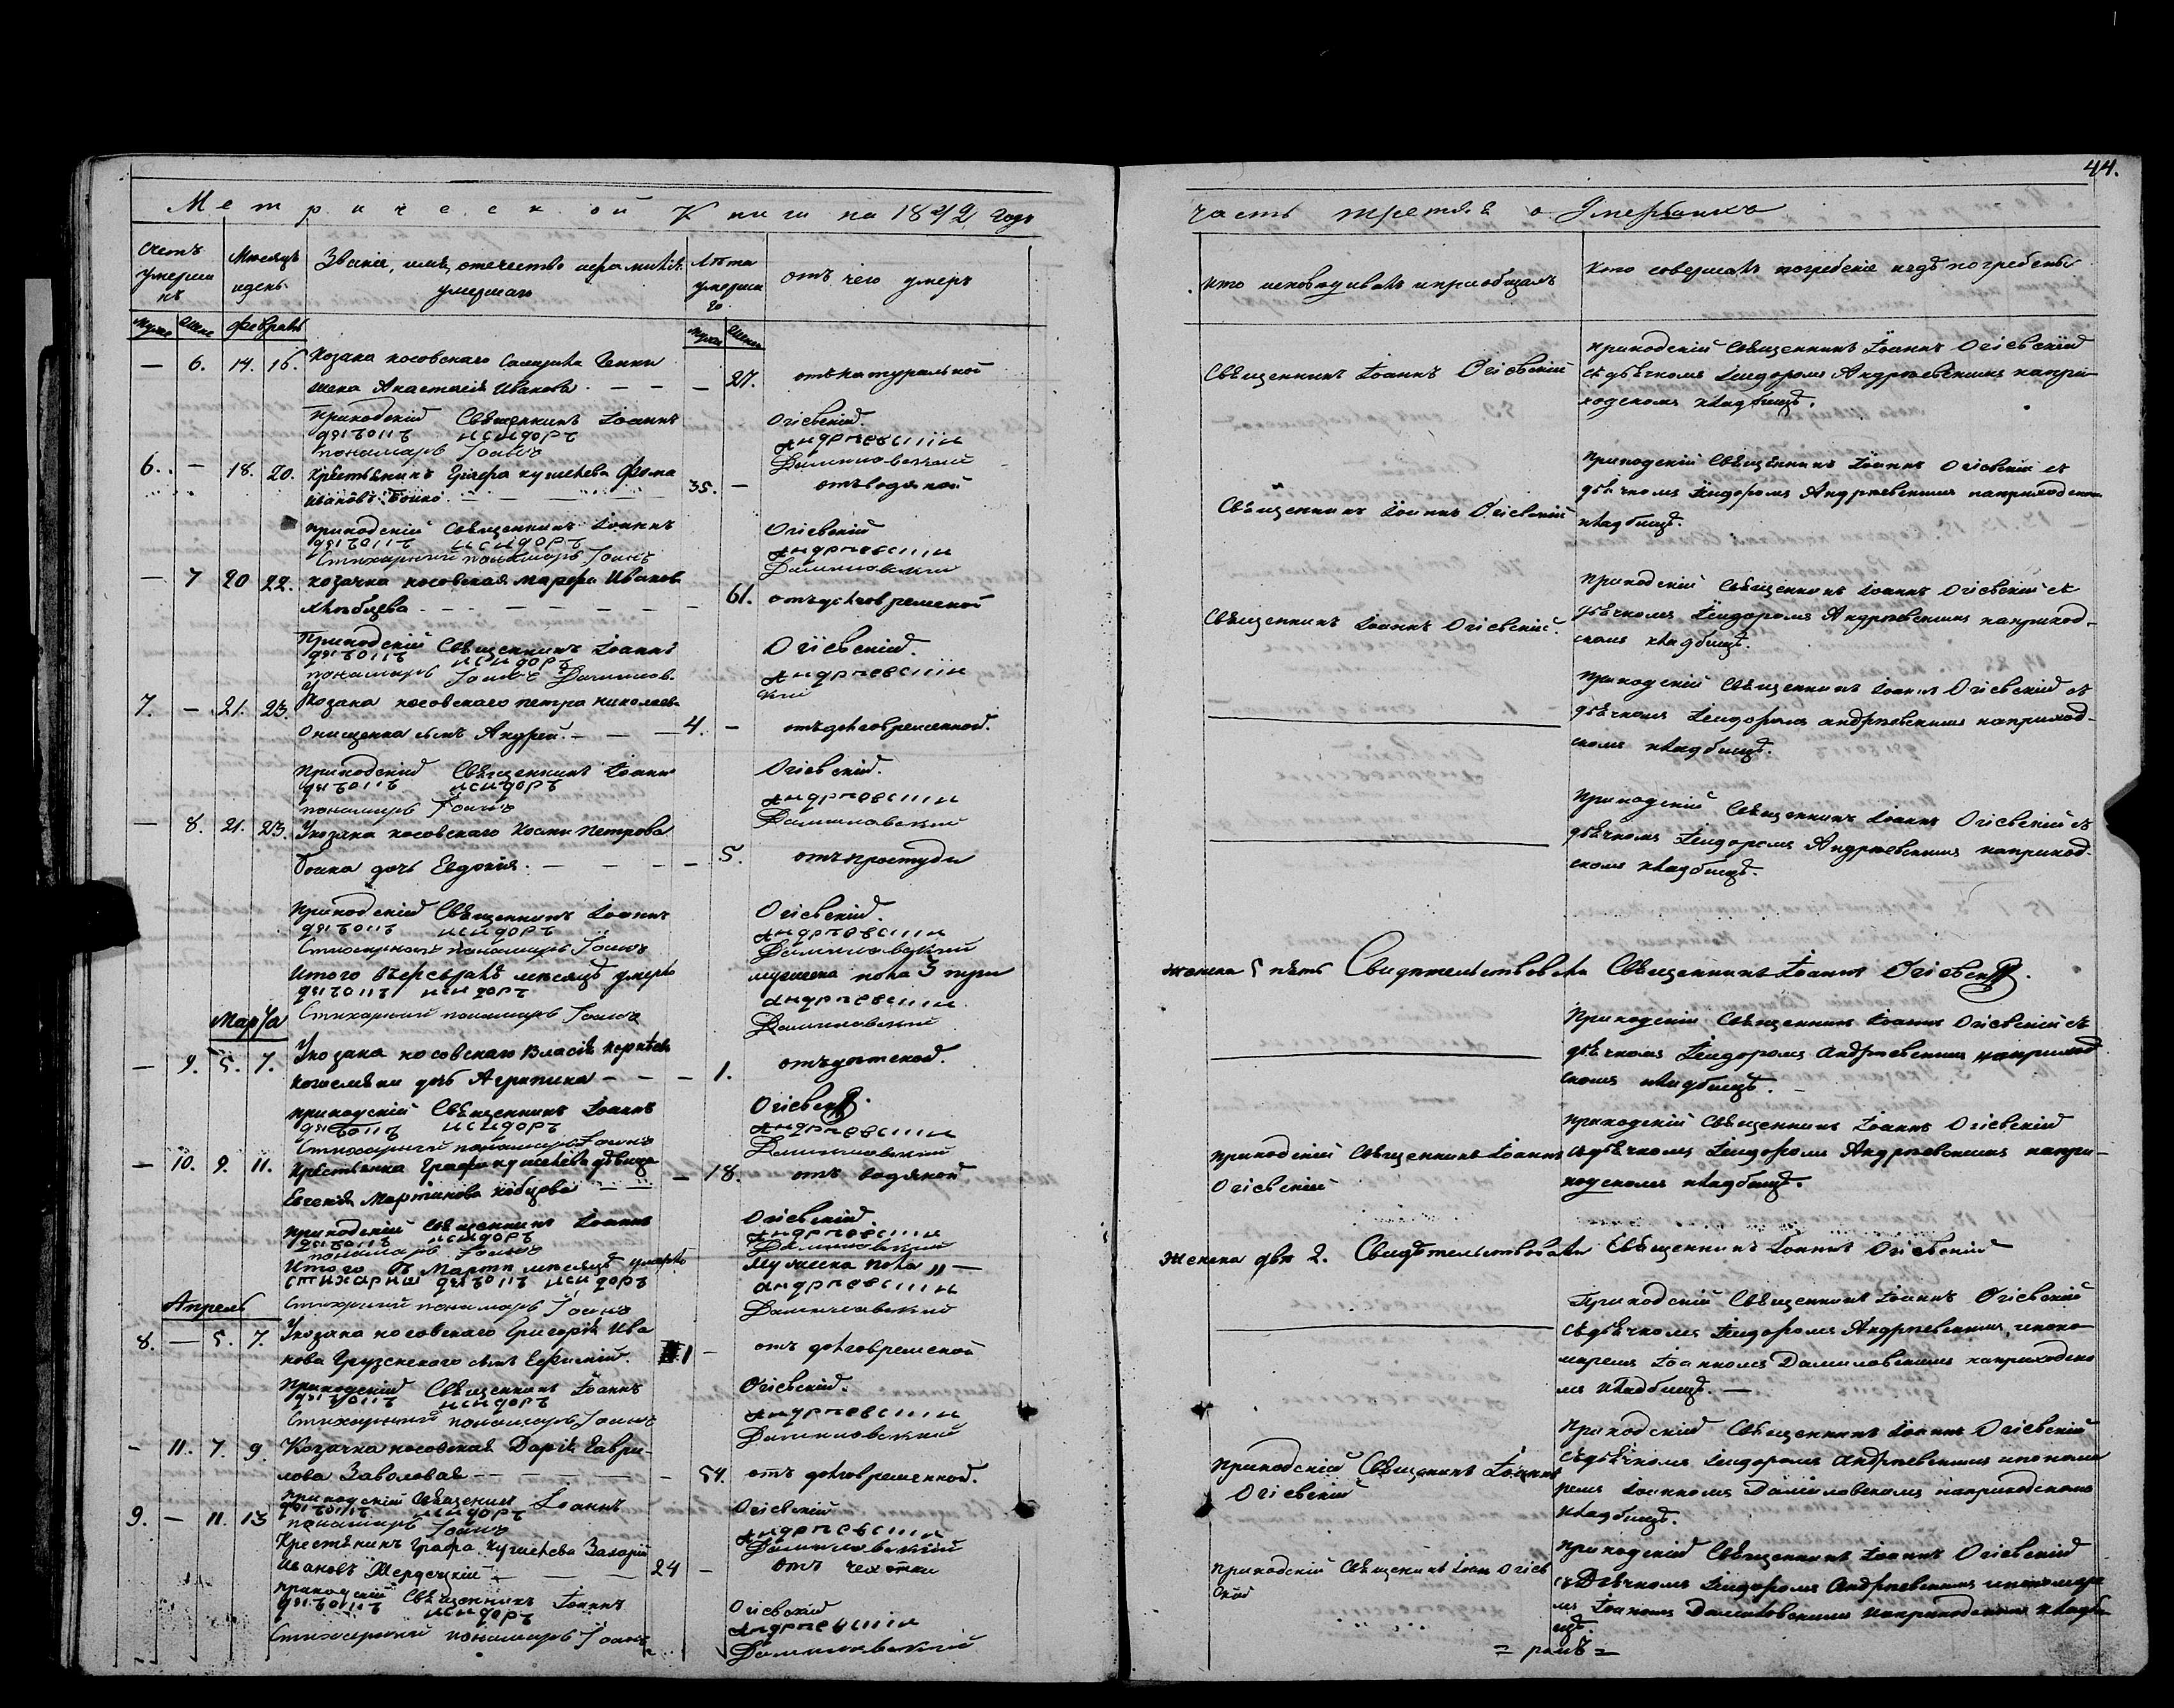 44.
Метрической Книги на 1842 годъ
часть третия о Умершихъ
Счетъ умершихъ
Месяцъ и день
Званіе, имя, отечество и фамилія умершаго
Лѣта умершаго
отъ чего умеръ
кто исповѣдивалъ и пріобщалъ
кто совершалъ погребеніе и гдѣ погребены
муж. женс. февраль муж. женс.
— 6. 14. 16. Козака носовскаго
жена Анастасія Иванова — — — 27. отъ натуральной
Священникъ Іоаннъ Огіевскій
приходскій Священникъ Іоаннъ Огіевскій
съ дьячкомъ Ісидоромъ Андріевскимъ на при-
ходскомъ кладбищѣ.
приходскій Священникъ Іоаннъ Огіевскій.
дячокъ исидоръ андріевскій
пономарь Іоаннъ Даниловскій
6. — 18. 20. Крестьянинъ Графа Кушелева Фома
Ивановъ Бойко — — — 35. — отъ водяной
Священникъ Іоаннъ Огіевскій
приходскій Священникъ Іоаннъ Огіевскій съ
дьячкомъ Ісидоромъ Андріевскимъ на приходскомъ
кладбищѣ.
приходскій Священникъ Іоаннъ Огіевскій
дячокъ исидоръ андріевскій
Стихарный пономарь Іоаннъ Даниловскій
— 7 20 22. козачка носовская Марфа Иванов
— — — — 61. отъ долговременной
Священникъ Іоаннъ Огіевскій.
приходскій Священникъ Іоаннъ Огіевскій съ
дьячкомъ Ісидоромъ Андріевскимъ на приход-
скомъ кладбищѣ.
Приходскій Священникъ Іоаннъ Огіевскій.
дячокъ исидоръ андріевскій
пономарь Іоаннъ Даниловский
7. — 21. 23. У Козака носовскаго Петра Николаева
Онищенка сынъ Андрей. — — — 4. — отъ долговременной.
приходскій Священникъ Іоаннъ Огіевскій съ
дьячкомъ Ісидоромъ андріевскимъ на приход-
скомъ кладбищѣ.
приходскій Священникъ Іоаннъ Огіевскій.
дячокъ исидоръ андріевскій
пономарь Іоаннъ Даниловский
— 8. 21. 23. У козака носовскаго Косми Петрова
Бойка дочь Евдокія. — — — — 5. отъ простуды
Приходскій Священникъ Іоаннъ Огіевскій съ
дьячкомъ Ісидоромъ Андріевскимъ на приход-
скомъ кладбищѣ.
приходскій Священникъ Іоаннъ Огіевскій.
дячокъ исидоръ андріевскій
Стихарный пономарь Іоаннъ Даниловскій
Итого въ февралѣ месяцѣ умерло мужеска пола 3 три женска 5 пять Свидѣтельствовали Священникъ Іоаннъ Огіевскій.
дячокъ исидоръ андріевскій
Стихарный пономарь Іоаннъ Даниловский
Марта
— 9. 5. 7. У козака носовскаго Власія
дочь Агрипина — — — 1. отъ дѣтской.
Приходскій Священникъ Іоаннъ Огіевскій съ
дьячкомъ Ісидоромъ андріевскимъ на приход
скомъ кладбищѣ. —
приходскій Священникъ Іоаннъ Огіевскій.
дячокъ исидоръ андріевскій
Стихарный пономарь Іоаннъ Даниловский
— 10. 9. 11. Крестьянка Графа Кушелева дѣвица
Евгенія Мартинова — — — 18. отъ водяной
приходскій Священникъ Іоаннъ
Огіевскій
приходскій Священникъ Іоаннъ Огіевскій
съ дьячкомъ Ісидоромъ Андріевскимъ на при-
ходскомъ кладбищѣ.
приходскій Священникъ Іоаннъ Огіевскій
дячокъ исидоръ андріевскій
пономарь Іоаннъ Даниловский
Итого въ Мартѣ месяцѣ умерло мужеска пола „ — женска двѣ 2. Свидѣтельствовали Священникъ Іоаннъ Огіевскій
стихарный дячокъ исидоръ андріевскій
Стихарный пономарь Іоаннъ Даниловский
Апрель
8. — 5. 7. У козака носовскаго Григорія Ива
нова Грузскего сынъ Ефимій. 1 — отъ долговременной
Приходскій Священникъ Іоаннъ Огіевскій
съ дьячкомъ Ісидоромъ Андріевскимъ, и поно-
маремъ Іоанномъ Даниловскимъ на приходско
мъ кладбищѣ. —
Приходскій Священникъ Іоаннъ Огіевскій.
дячокъ исидоръ андріевскій
Стихарный пономарь Іоаннъ Даниловский
— 11. 7. 9. Козачка носовская Дарія Гаври-
лова Заволовая — — — — 54. отъ долговременной.
Приходскій Священникъ Іоаннъ
Огіевскій
приходскій Священникъ Іоаннъ Огіевскій
съ дьячкомъ Ісидоромъ андріевскимъ и понома
ремъ Іоанномъ Даниловскимъ на приходскомъ
кладбищѣ.
приходскій Священникъ Іоаннъ Огіевскій
дячокъ исидоръ андріевскій
пономарь Іоаннъ Даниловскій
9. — 11. 13 Крестянинъ Графа Кушелева Захарій
Ивановъ — — — 24 — отъ чехотки
приходскій Священникъ Іоан Огіев
скій
приходскій Священникъ Іоаннъ Огіевскій
съ Дьячкомъ Ісидоромъ Андріевскимъ и пономаре
мъ Іоаномъ Даниловскимъ на приходскомъ кладби
щѣ.
приходскій Священникъ Іоаннъ Огіевскій
дячокъ исидоръ андріевскій
Стихарный пономарь Іоаннъ Даниловский